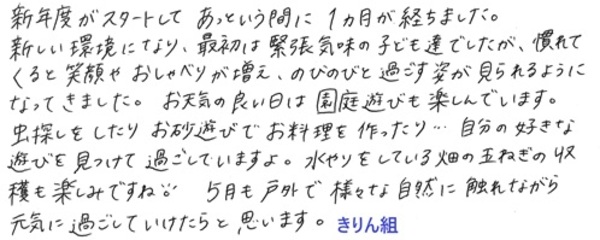 新年度がスタートして あっという間に 1ヵ月が経ちました。
新しい環境になり、最初は緊張気味の子ども達でしたが、慣れて
くると笑顔や おしゃべりが増え、のびのびと過ごす姿が見られるように
なってきました。 お天気の良い日は 園庭遊びも楽しんでいます。
虫探しをしたり お砂遊びで お料理を作ったり… 自分の好きな
遊びを見つけて 過ごしていますよ。水やりをしている畑の玉ねぎの収
穫も楽しみですね 5月も戸外で 様々な自然に触れながら
元気に過ごしていけたらと思います。 きりん組